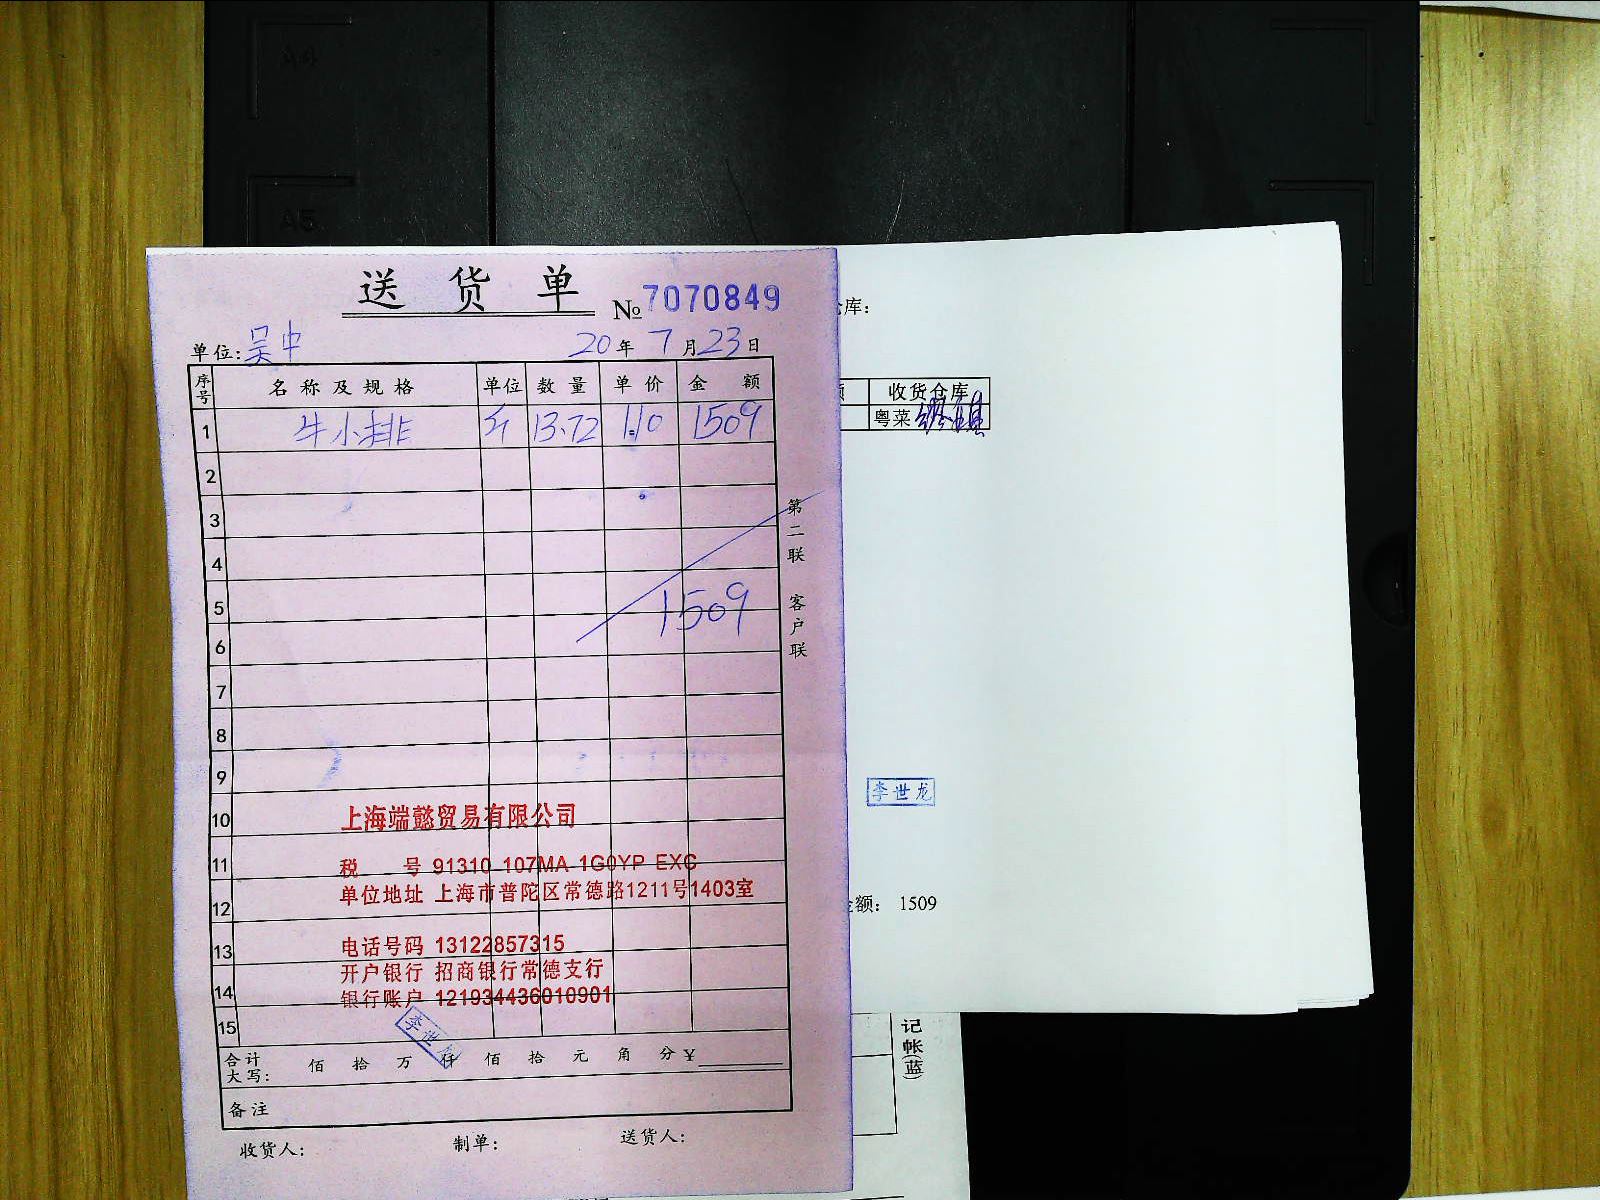 A4
A5
送 货 单
№7070849
单位:吴中
20年 7月23日
序号 名称及规格 单位 数量 单价 金 额
1 牛小排 斤 13.72 110 1509
2
3
4
5 1509
6
7
8
9
10
11
12
13
14
15
第二联 客户联
上海端懿贸易有限公司
税 号 91310 107MA 1G0YP EXC
单位地址 上海市普陀区常德路1211号1403室
电话号码 13122857315
开户银行 招商银行常德支行
银行账户 121934436010901
李世龙
合计大写: 佰 拾 万 仟 佰 拾 元 角 分 ¥
备注
收货人: 制单: 送货人:
库:
额 收货仓库
粤菜
李世龙
金额: 1509
记帐(蓝)